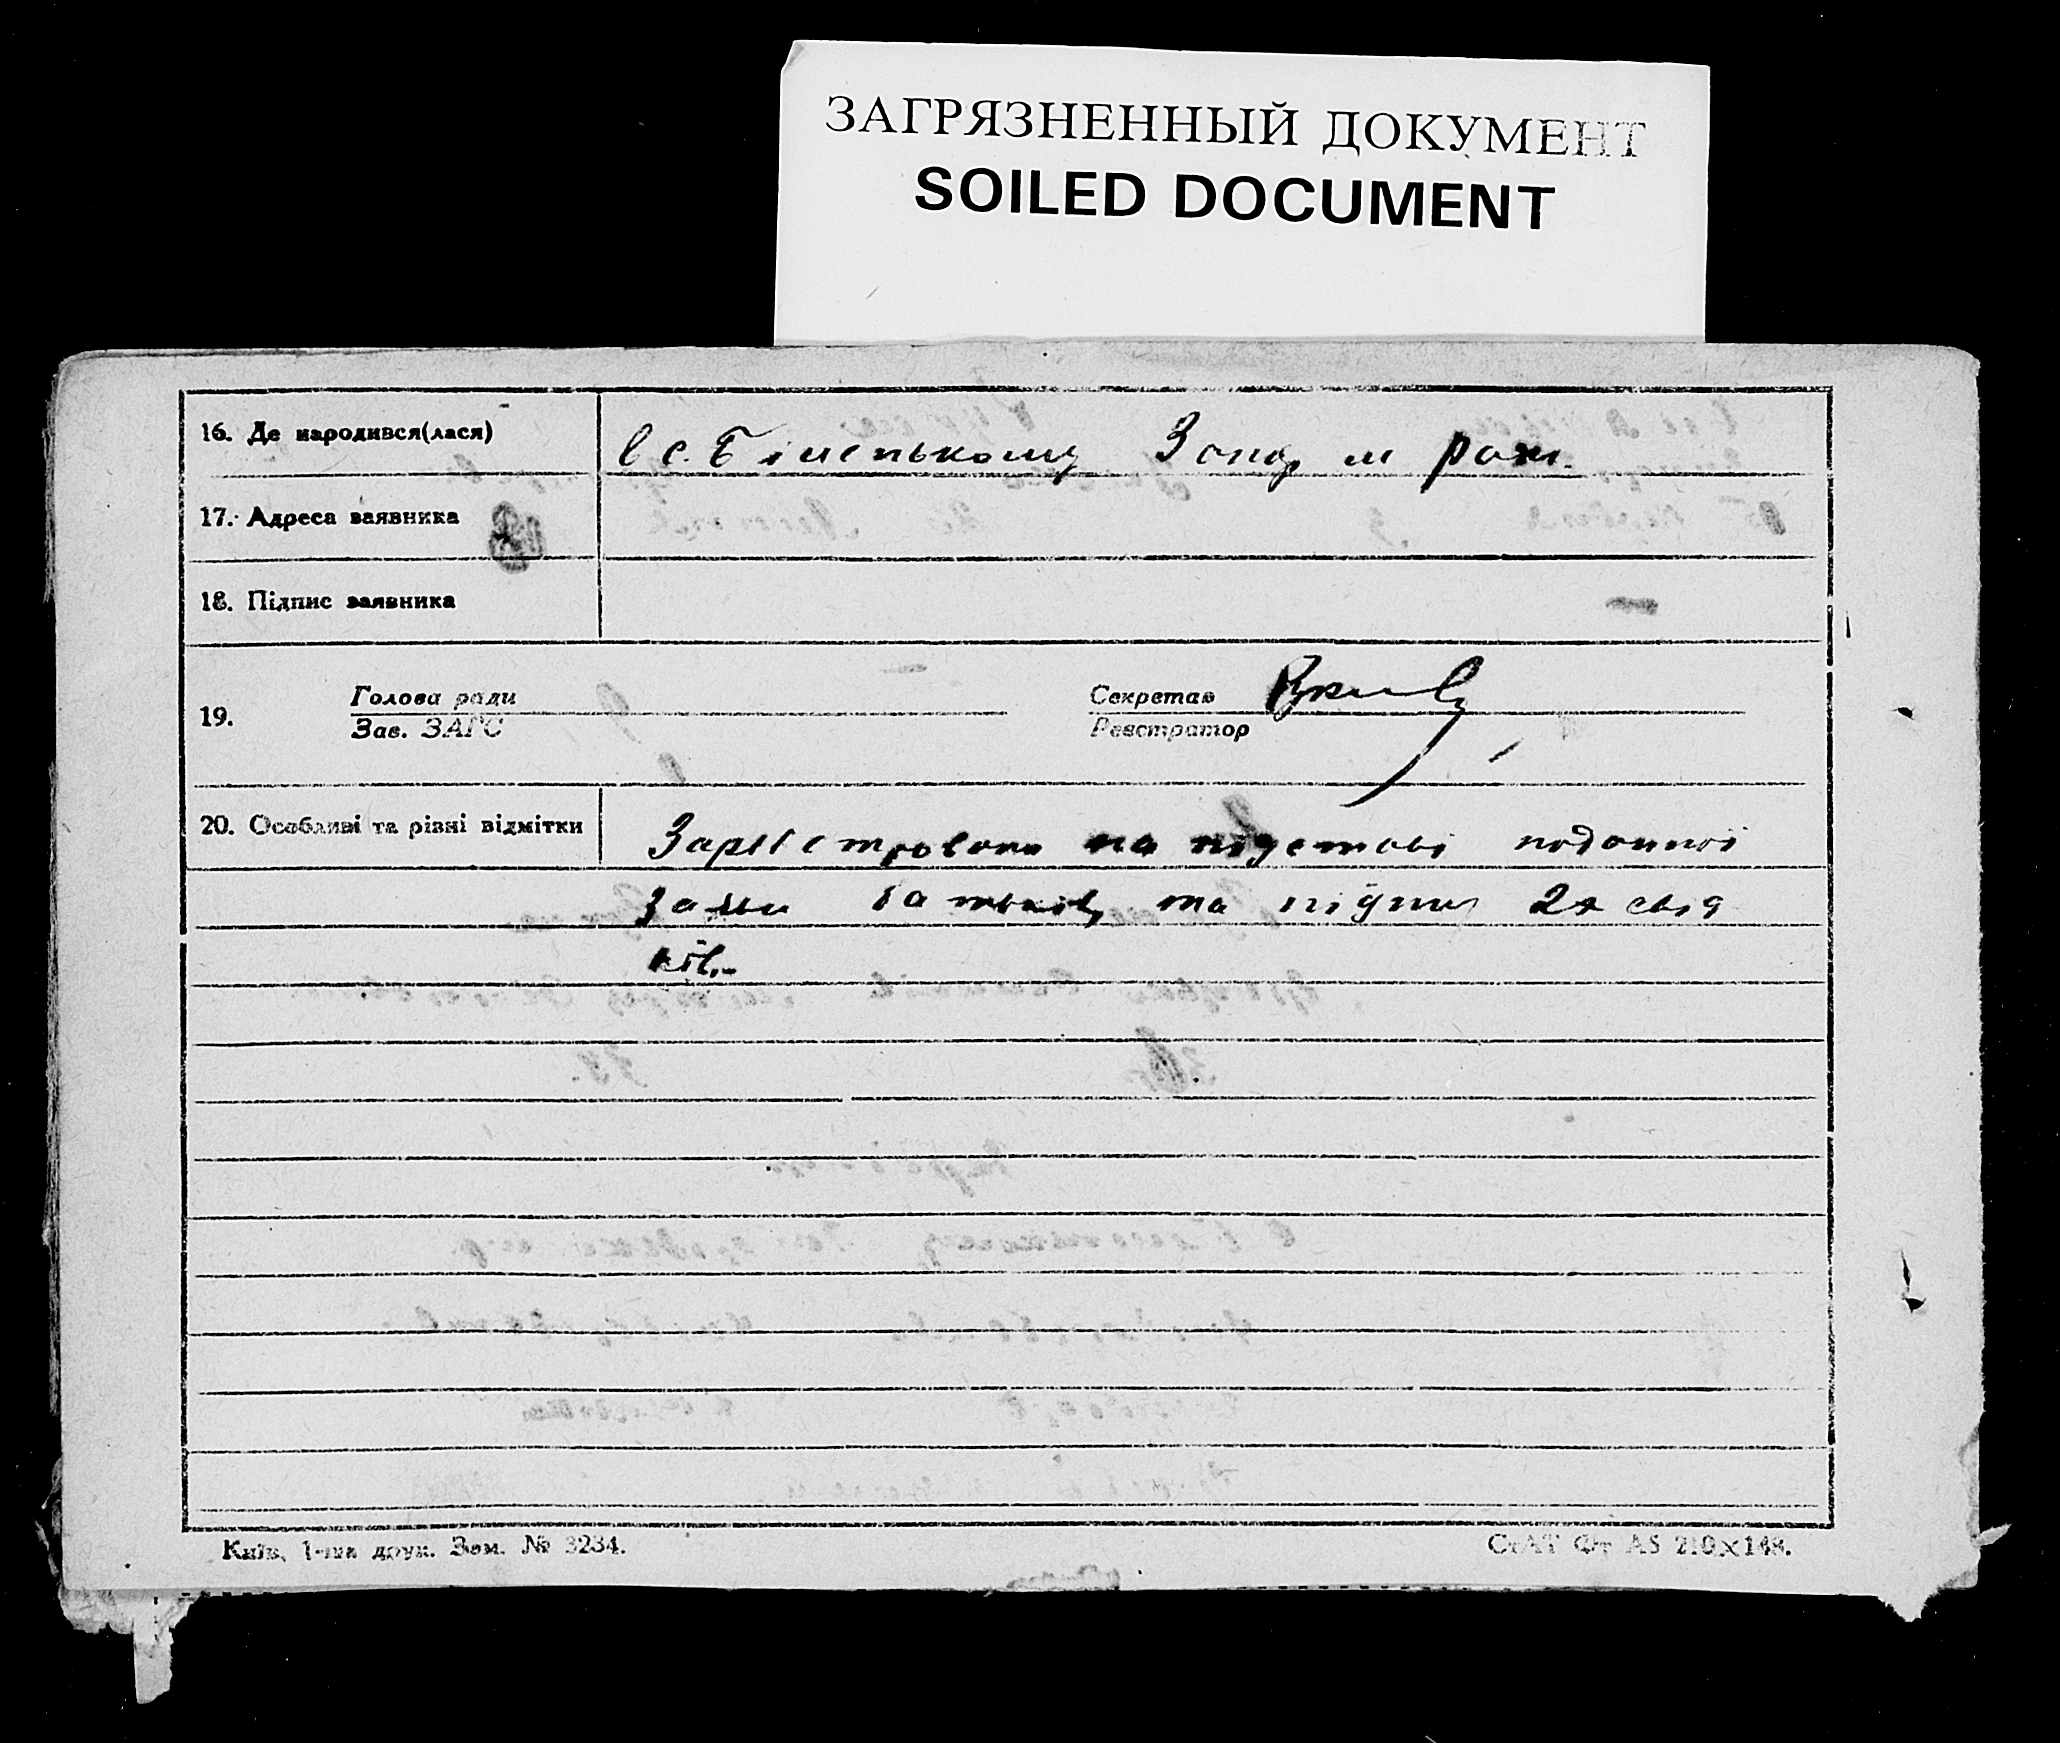 ЗАГРЯЗНЕННЫЙ ДОКУМЕНТ
SOILED DOCUMENT
16. Де народився(лася)
в с. Біленькому Запор м рай.
17. Адреса заявника
18. Підпис заявника
19.
Голова ради
Зав. ЗАГС
Секретар
Реєстратор
20. Особливі та різні відмітки
Зареєстровано на підставі поданної
заяви батьків, та підпис 2х свід
ків.-
Київ, 1-ша друк. Зам. № 3234.
СтАТ Фт А5 210×148.